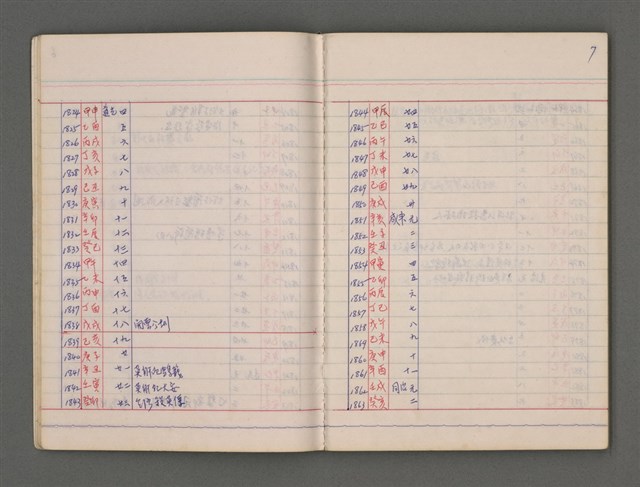 1824 甲申 道光 四
1825 乙酉 五
1826 丙戌 六
1827 丁亥 七
1828 戊子 八
1829 己丑 九
1830 庚寅 十
1831 辛卯 十一
1832 壬辰 十二
1833 癸巳 十三
1834 甲午 十四
1835 乙未 十五
1836 丙申 十六
1837 丁酉 十七
1838 戊戌 十八
1839 己亥 十九
1840 庚子 廿
1841 辛丑 廿一 英船犯
1842 壬寅 廿二 英船犯大安
1843 癸卯 廿三
7
1844 甲辰 廿四
1845 乙巳 廿五
1846 丙午 廿六
1847 丁未 廿七
1848 戊申 廿八
1849 己酉 廿九
1850 庚戌 卅
1851 辛亥 咸豐 元
1852 壬子 二
1853 癸丑 三
1854 甲寅 四
1855 乙卯 五
1856 丙辰 六
1857 丁巳 七
1858 戊午 八
1859 己未 九
1860 庚申 十
1861 辛酉 十一
1862 壬戌 同治 元
1863 癸亥 二